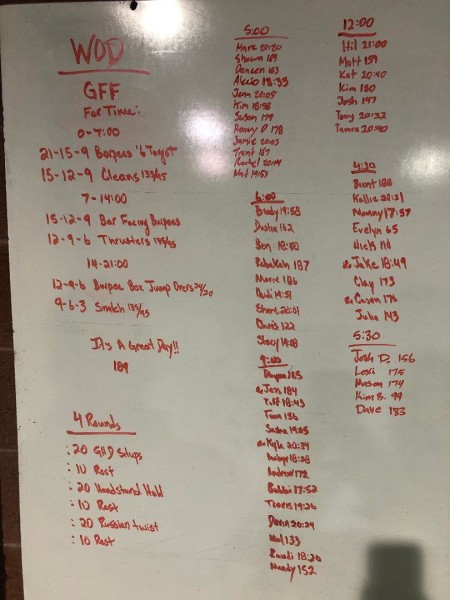 WOD
GFF
For Time:
0-7:00
21-15-9 Burpees 6" Target
15-12-9 Cleans 135/95
7-14:00
15-12-9 Bar Facing Burpees
12-9-6 Thrusters 135/95
14-21:00
12-9-6 Burpee Box Jump Overs 24/20
9-6-3 Snatch 135/95
It's A Great Day!!
189
4 Rounds
:20 GHD Situps
:10 Rest
:20 Handstand Hold
:10 Rest
:20 Russian twist
:10 Rest
5:00
Marc 20:20
Shawn 169
Doneen 163
Alecio 18:33
Jenn 20:05
Kim 18:58
Susan 179
Henry O 178
Jamie 20:03
Trent 187
Rachel 20:14
Nat 19:53
6:00
Brody 19:58
Dustin 162
Ben 18:00
Rebekah 187
Marie 186
Heidi 19:51
Shari 20:01
Chris 122
Stacy 19:08
9:00
165
Jess 184
Tiff 18:43
Tom 156
Sasha 19:25
Kyle 20:34
18:28
Andrew 172
Bobbi 17:52
Travis 19:26
Devin 20:24
Mel 133
Randi 18:20
Mandy 152
12:00
Hil 21:00
Matt 159
Kat 20:40
Kim 180
Josh 147
Tony 20:32
Tamra 20:40
4:30
Brent 188
Kallie 20:21
Manny 17:57
Evelyn 65
Nick 110
Jake 18:49
Clay 173
Carson 176
Julie 143
5:30
Josh D. 156
Lexi 175
Mason 174
Kim B. 99
Dave 183